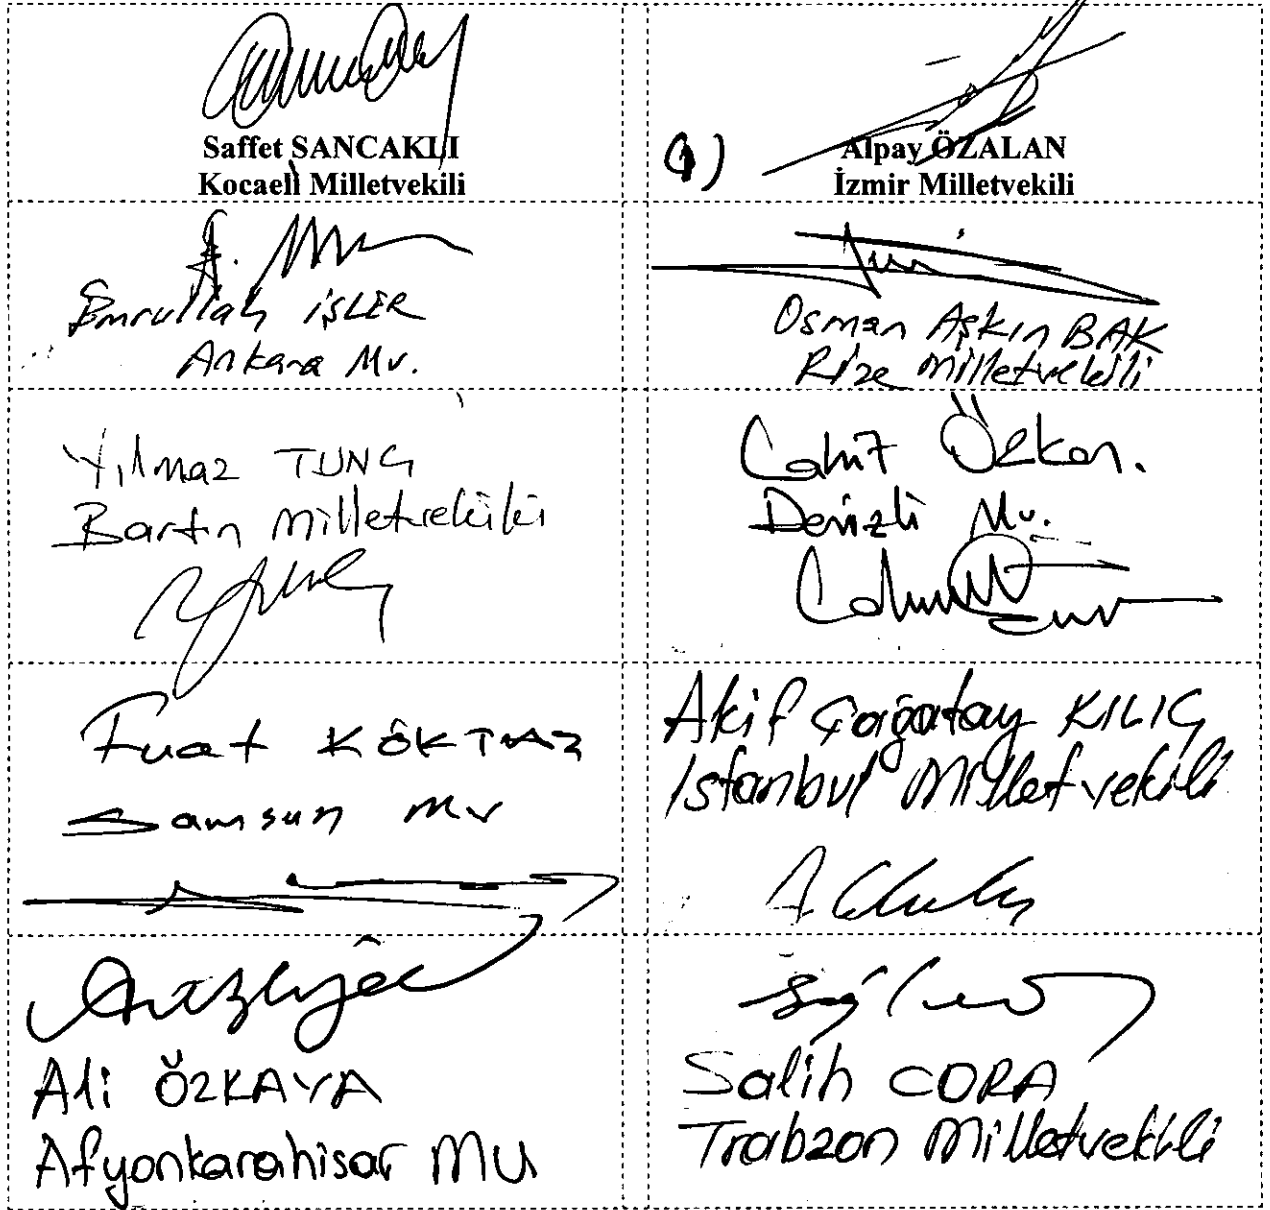 Saffet SANCAKLI
Kocaeli Milletvekili
1)
Alpay ÖZALAN
İzmir Milletvekili
Emrullah İŞLER
Ankara Mv.
Osman Aşkın BAK
Rize Milletvekili
Yılmaz TUNÇ
Bartın Milletvekili
Cahit Özkan.
Denizli Mv.
Fuat KÖKTAŞ
Samsun Mv
Akif Çağatay KILIÇ
İstanbul Milletvekili
Ali ÖZKAYA
Afyonkarahisar MV
Salih CORA
Trabzon Milletvekili